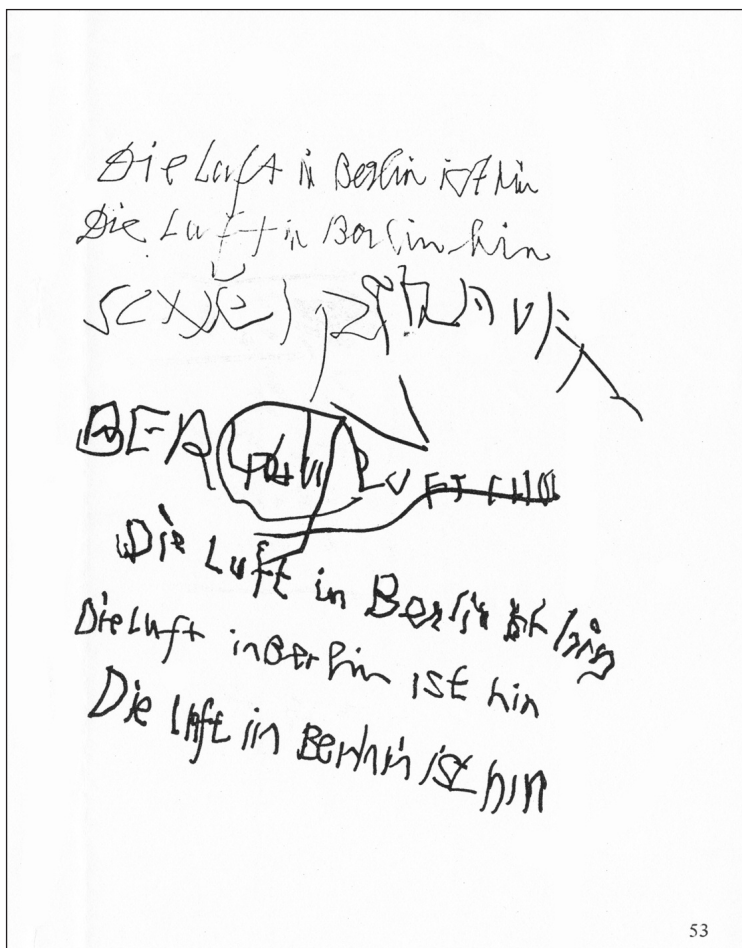 Die Luft in Berlin ist hin
Die Luft in Berlin hin
BER LUFT
Die Luft in Berlin ist hin
Die Luft in Berlin ist hin
Die Luft in Berlin ist hin
53